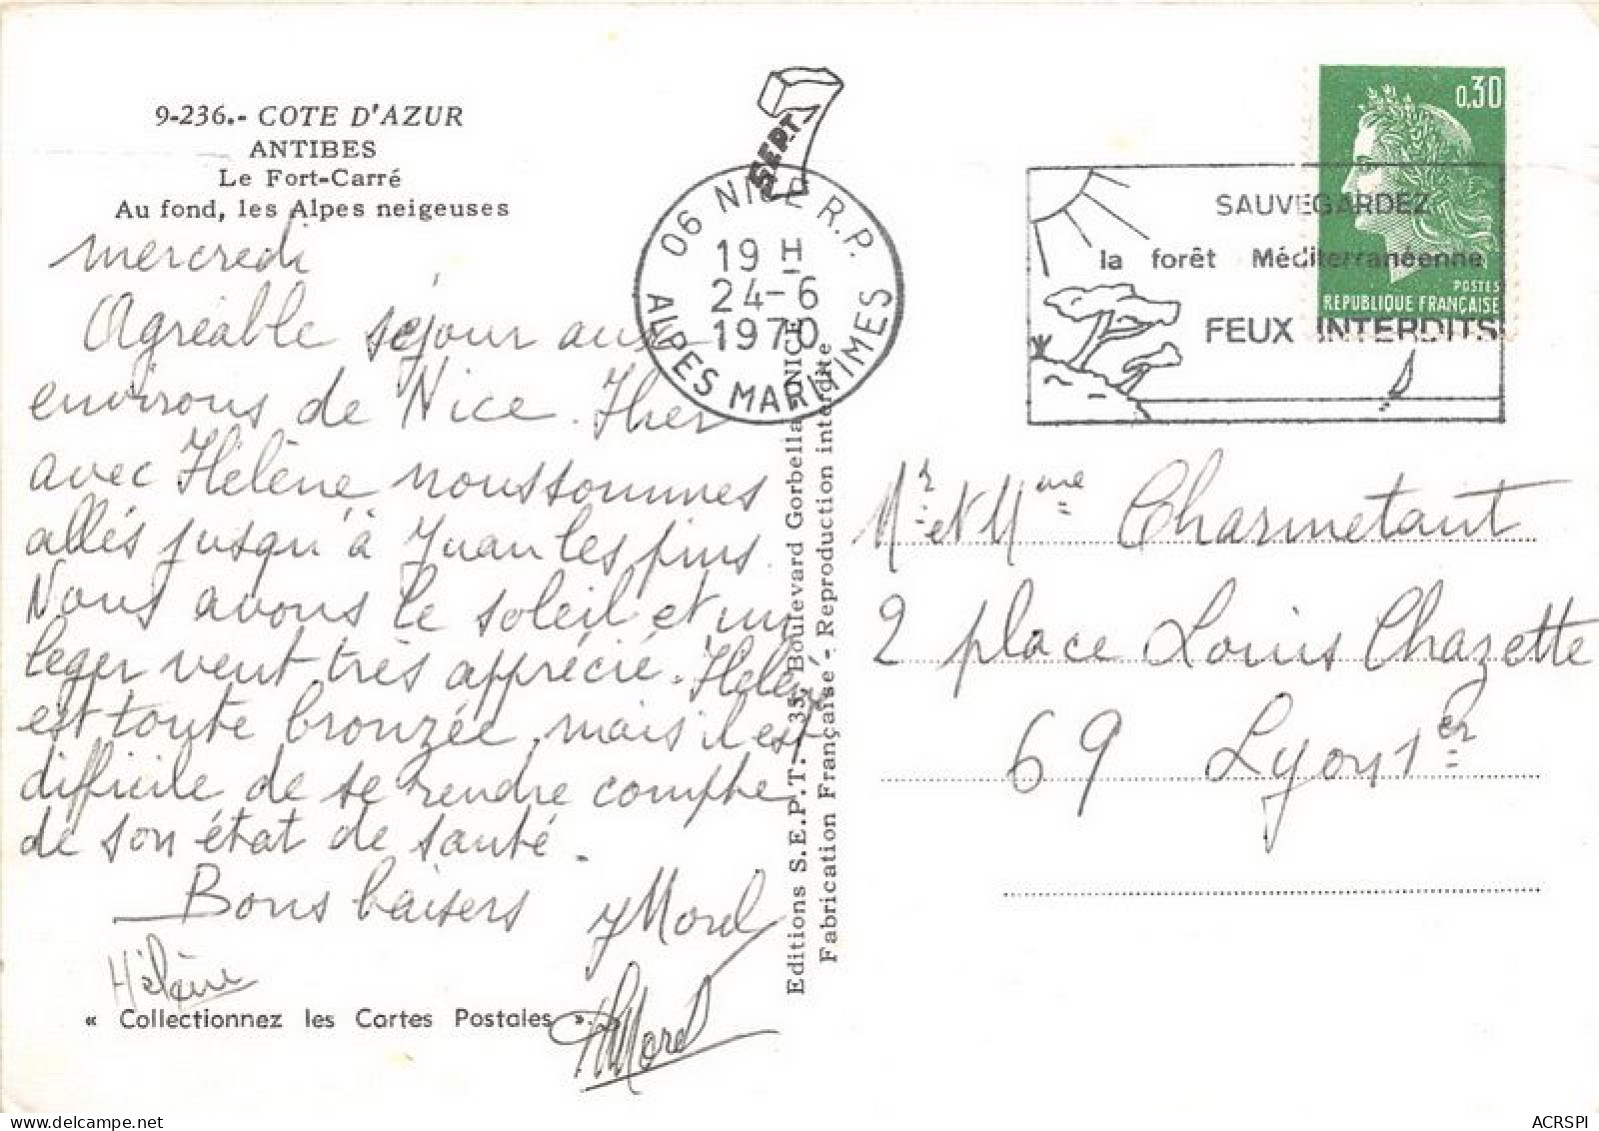 9-236.- COTE D'AZUR
ANTIBES
Le Fort-Carré
Au fond, les Alpes neigeuses
mercredi
Agréable séjour aux
environs de Nice. Hier
avec Hélène nous sommes
allés jusqu'à Juan les pins.
Nous avons le soleil et un
leger vent très apprécié. Hélène
est toute bronzée mais il est
difficile de se rendre compte
de son état de santé.
Bons baisers
YMorel
Hélène
« Collectionnez les Cartes Postales ».
Morel
SEPT
06 NICE R.P.
19 H
24-6
1970
ALPES MARITIMES
Editions S.E.P.T. - 35, Boulevard Gorbella - NICE
Fabrication Française - Reproduction interdite
0,30
POSTES
REPUBLIQUE FRANÇAISE
SAUVEGARDEZ
la forêt Méditerranéenne
FEUX INTERDITS
Mr et Mme Charmetant
2 place Louis Chazette
69 Lyon 1er
delcampe.net
ACRSPI